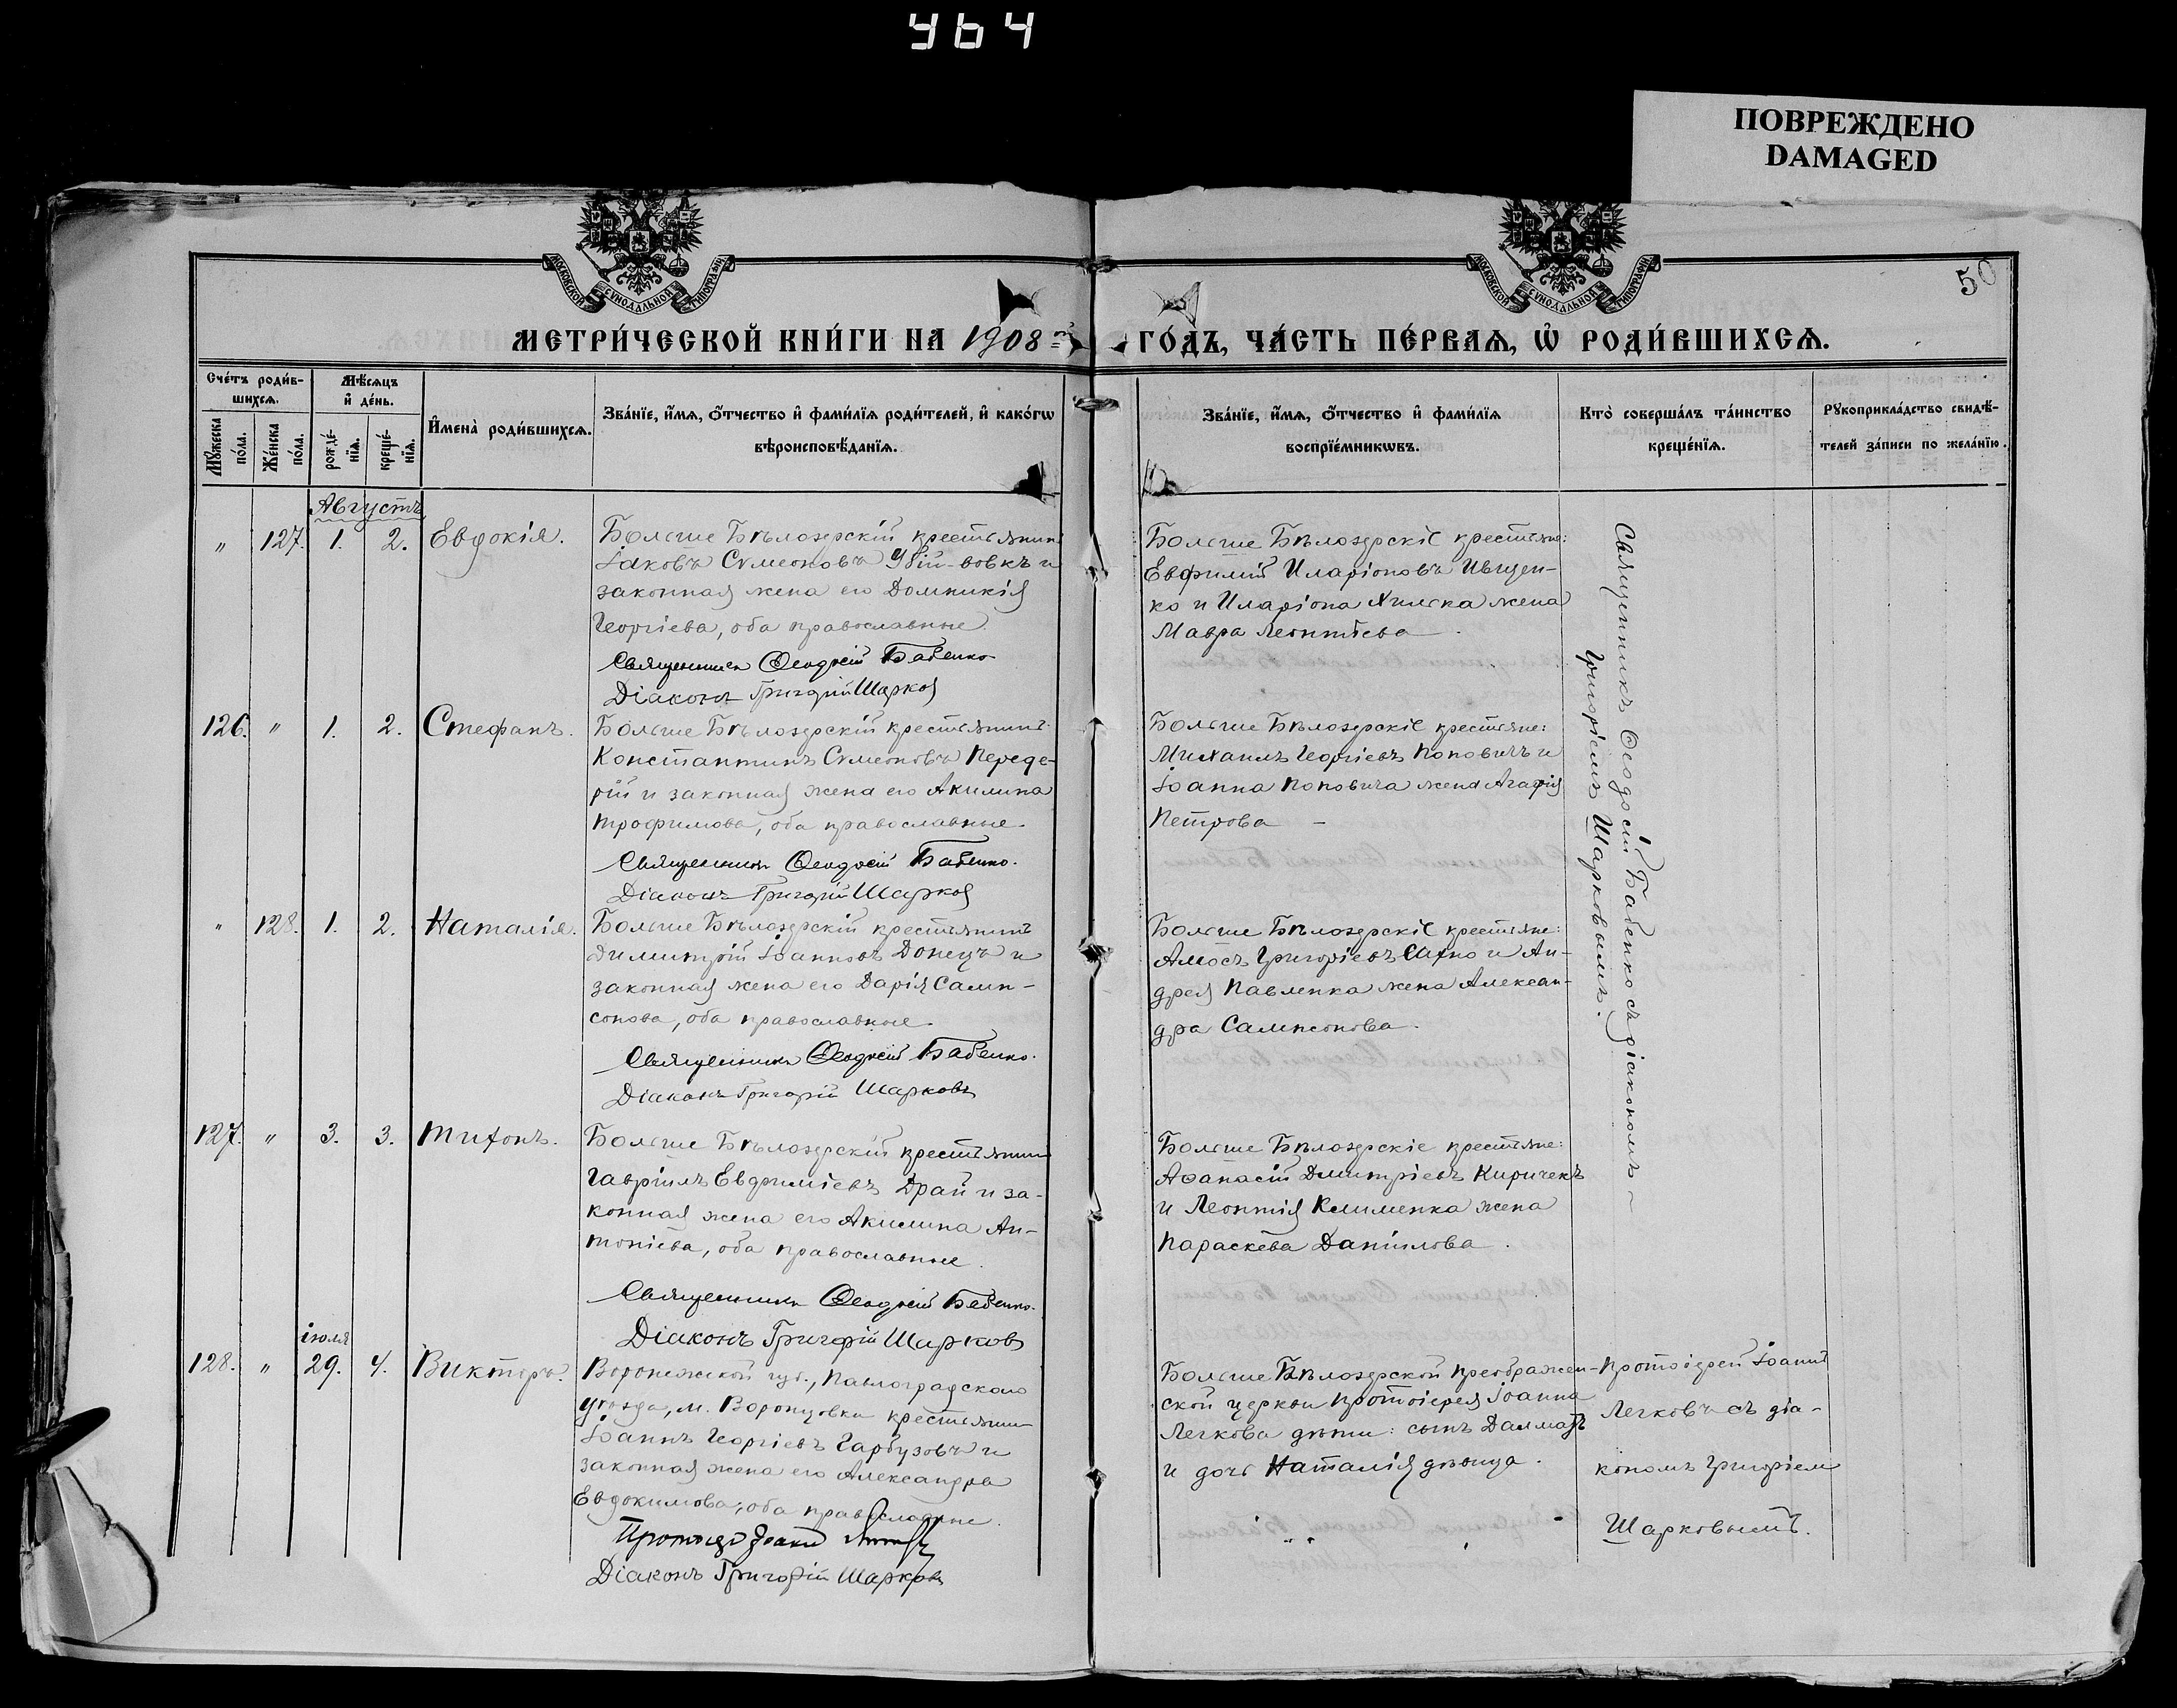 964
ПОВРЕЖДЕНО
DAMAGED
МОСКОВСКОЙ СУНОДАЛЬНОЙ ТИПОГРАФІИ
МОСКОВСКОЙ СУНОДАЛЬНОЙ ТИПОГРАФІИ
50
МЕТРИ́ЧЕСКОЙ КНИ́ГИ НА 1908 й
ГО́ДЪ, ЧА́СТЬ ПЕ́РВАѦ, Ѡ҆ РОДИ́ВШИХСѦ.
Сче́тъ роди́в-
шихсѧ.
Мѣ́сѧцъ
и҆ де́нь.
Мꙋ́жеска
по́ла.
Же́нска
по́ла.
рожде́-
нїѧ.
креще́-
нїѧ.
И҆мена̀ роди́вшихсѧ.
Зва́нїе, и҆́мѧ, ѻ҆́тчество и҆ фами́лїѧ роди́телей, и҆ како́гѡ
вѣроисповѣ́данїѧ.
Зва́нїе, и҆́мѧ, ѻ҆́тчество и҆ фами́лїѧ
воспрїе́мникѡвъ.
Кто̀ соверша́лъ та́инство
креще́нїѧ.
Рꙋкоприкла́дство свидѣ́-
телей за́писи по жела́нїю.
Августъ
" 127. 1. 2. Евдокія.
Больше Бѣлозерскій крестьянинъ
Іаковъ Сумеоновъ Убій-вовкъ и
законная жена его Домникія
Георгіева, оба православные.
Священникъ Ѳеодосій Бабенко
Діаконъ Григорій Шарковъ
Больше Бѣлозерскіе крестьяне:
Евфимій Иларіоновъ Ивщен-
ко и Иларіона Хилька жена
Мавра Леонтіева.
Священникъ Ѳеодосій Бабенко съ діакономъ
Григоріемъ Шарковымъ.
126. " 1. 2. Стефанъ.
Больше Бѣлозерскій крестьянинъ
Константинъ Сумеоновъ Переде-
рій и законная жена его Акилина
Трофимова, оба православные.
Священникъ Ѳеодосій Бабенко.
Діаконъ Григорій Шарковъ
Больше Бѣлозерскіе крестьяне:
Михаилъ Георгіевъ Поповичъ и
Іоанна Поповича жена Агафія
Петрова
" 128. 1. 2. Наталія.
Больше Бѣлозерскій крестьянинъ
Димитрій Іоанновъ Донецъ и
законная жена его Дарія Самп-
сонова, оба православные.
Священникъ Ѳеодосій Бабенко.
Діаконъ Григорій Шарковъ
Больше Бѣлозерскіе крестьяне:
Амосъ Григоріевъ Сахно и Ан-
дрея Павленка жена Алексан-
дра Сампсонова.
127. " 3. 3. Тихонъ.
Больше Бѣлозерскій крестьянинъ
Гавріилъ Евфиміевъ Драй и за-
конная жена его Акилина Ан-
тоніева, оба православные.
Священникъ Ѳеодосій Бабенко.
Діаконъ Григорій Шарковъ
Больше Бѣлозерскіе крестьяне:
Аѳанасій Дмитріевъ Киричекъ
и Леонтія Клименка жена
Параскева Даніилова.
іюля
128. " 29. 4. Викторъ.
Воронежской губ., Павлоградскаго
уѣзда, м. Воронцовки крестьянинъ
Іоаннъ Георгіевъ Гарбузовъ и
законная жена его Александра
Евдокимова, оба православные.
Діаконъ Григорій Шарковъ
Больше Бѣлозерской Преображен-
ской церкви Протоіерея Іоанна
Легкова дѣти: сынъ Далматъ
и дочь Наталія дѣвица.
Протоіерей Іоаннъ
Легковъ съ діа-
кономъ Григоріем
Шарковымъ.